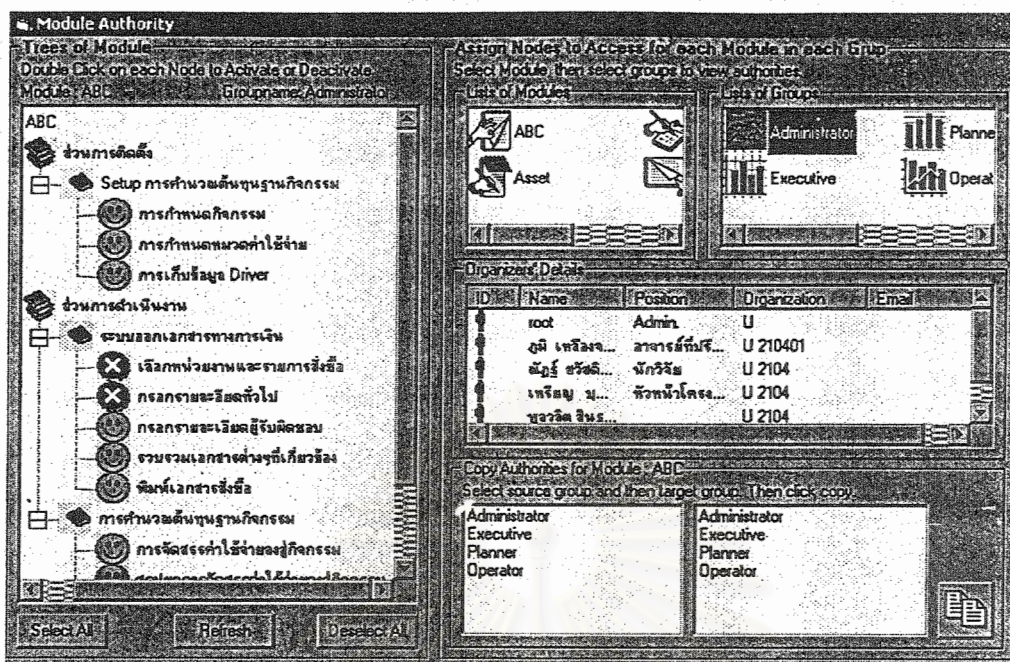 Module Authority
Trees of Module
Double Click on each Node to Activate or Deactivate
Module : ABC Groupname: Administrator
ABC
ส่วนการติดตั้ง
Setup การคำนวณต้นทุนฐานกิจกรรม
การกำหนดกิจกรรม
การกำหนดหมวดค่าใช้จ่าย
การเก็บข้อมูล Driver
ส่วนการดำเนินงาน
ระบบออกเอกสารทางการเงิน
เลือกหน่วยงานและรายการสั่งซื้อ
กรอกรายละเอียดทั่วไป
กรอกรายละเอียดผู้รับผิดชอบ
รวบรวมเอกสารต่างๆที่เกี่ยวข้อง
พิมพ์เอกสารสั่งซื้อ
การคำนวณต้นทุนฐานกิจกรรม
การจัดสรรค่าใช้จ่ายลงสู่กิจกรรม
Select All Refresh Deselect All
Assign Nodes to Access for each Module in each Grup
Select Module, then select groups to view authorities.
Lists of Modules
ABC
Asset
Lists of Groups
Administrator Planne
Executive Operat
Organizers' Details
ID Name Position Organization Email
root Admin. U
ภูมิ เหลืองจ... อาจารย์ที่ปรึ... U 210401
ณัฏฐ์ สวัสดิ... นักวิจัย U 2104
เหรียญ บุ... หัวหน้าโครง... U 2104
U 2104
Copy Authorities for Module : ABC
Select source group and then target group. Then click copy.
Administrator
Executive
Planner
Operator
Administrator
Executive
Planner
Operator